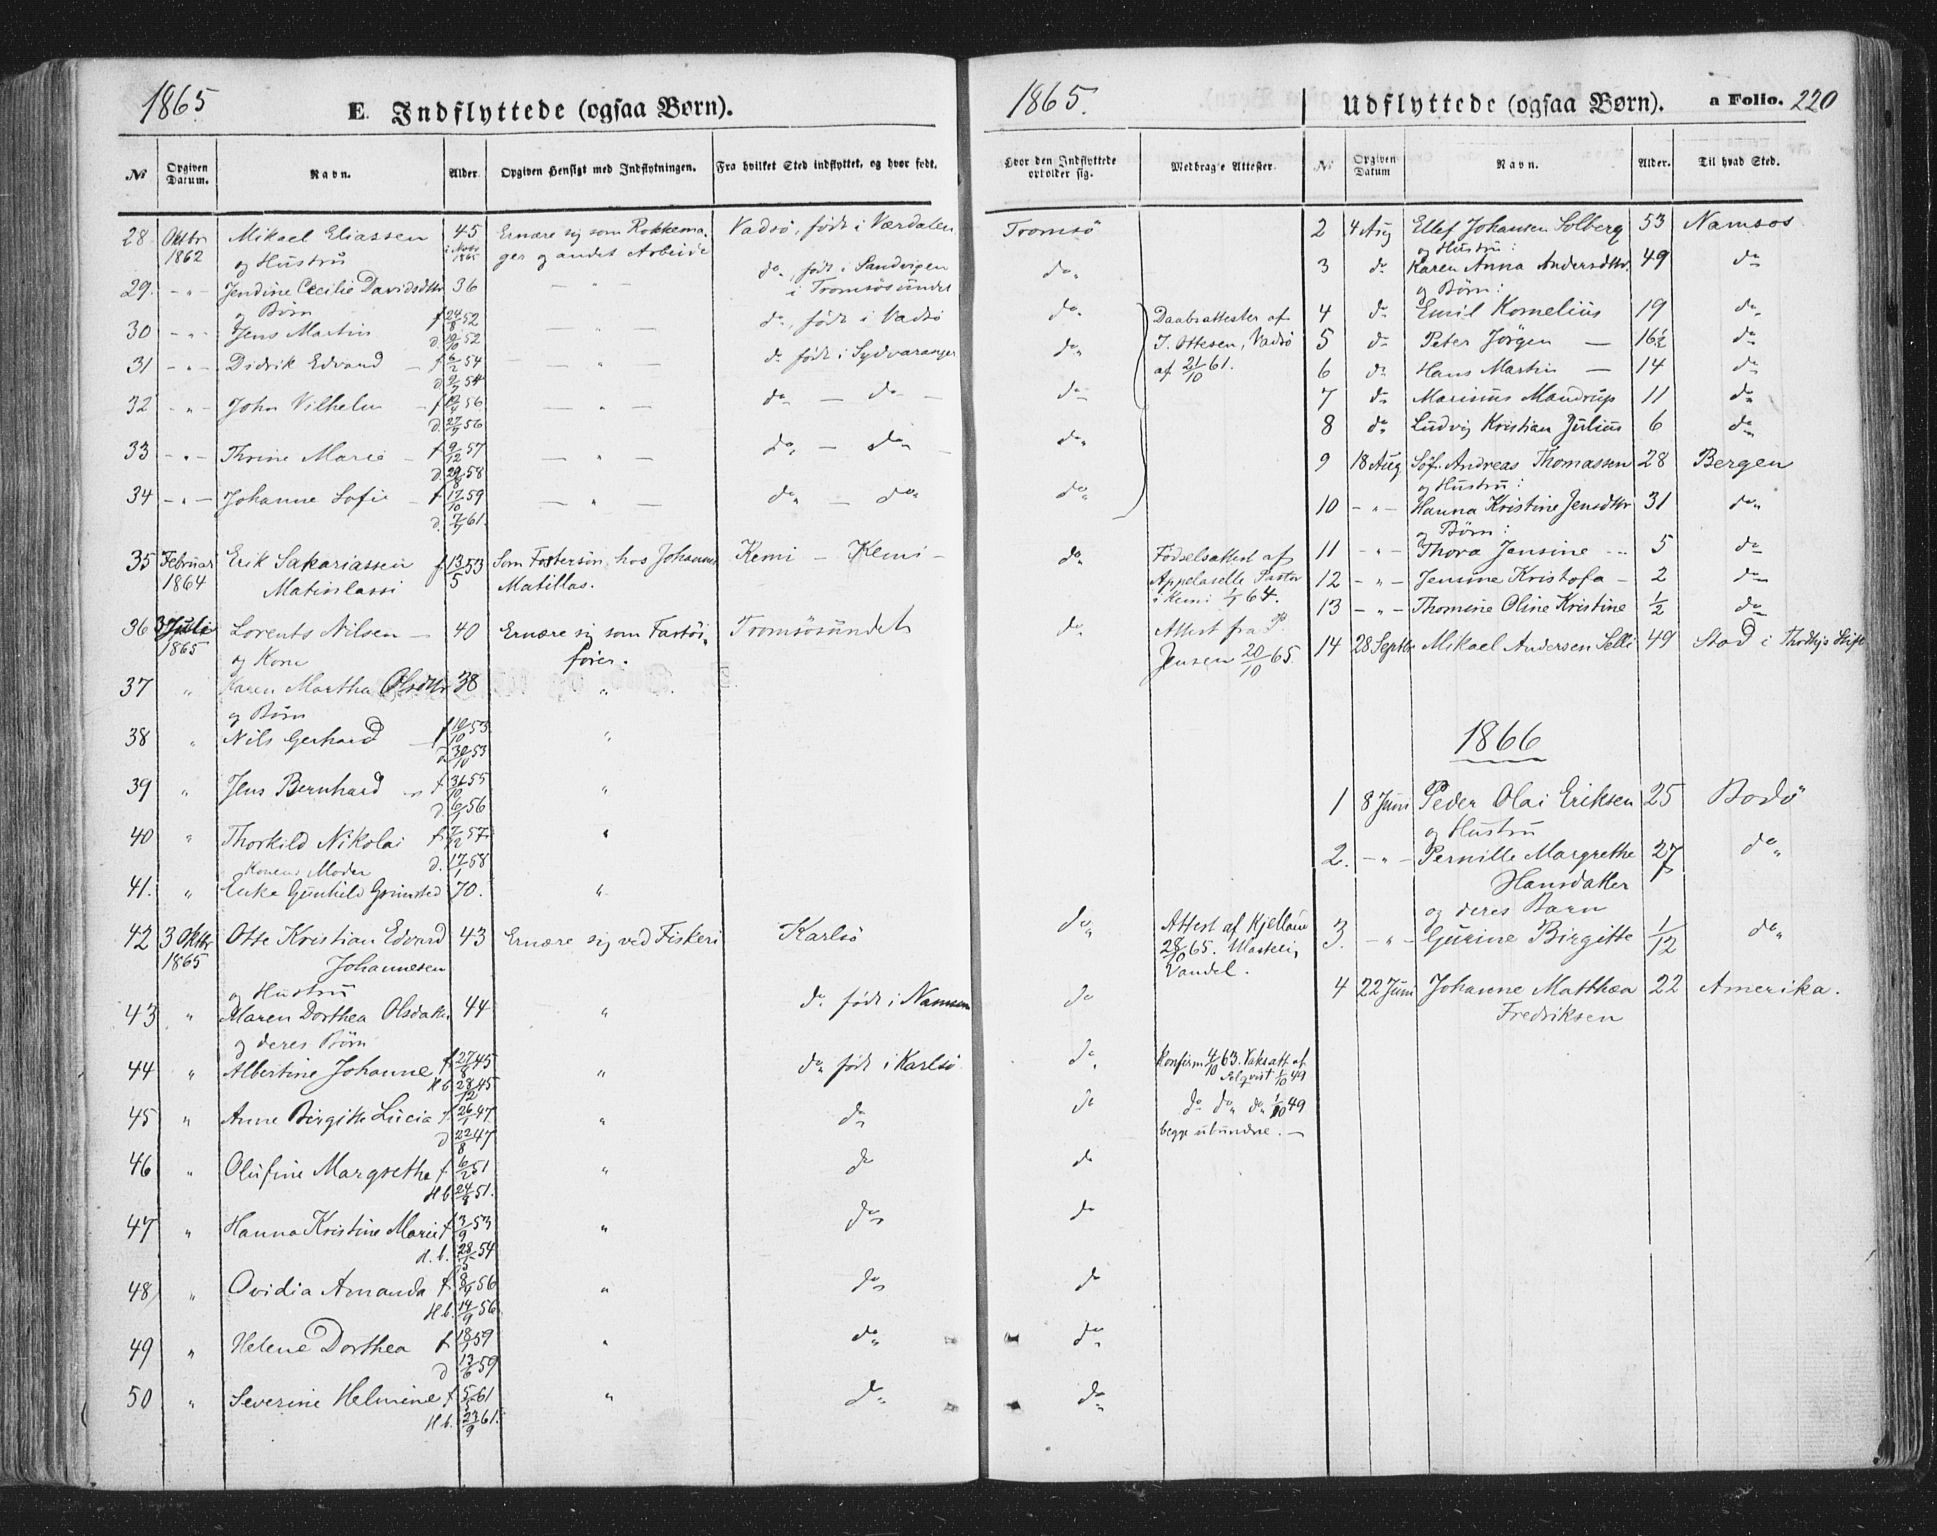 1865
E. Indflyttede (ogsaa Børn).
No
Opgiven Datum.
Navn.
Alder.
Opgiven Hensigt med Indflytningen.
Fra hvilket Sted indflyttet, og hvor født.
28 Oktbr 1862 Mikael Eliassen 45 Ernære sig som Rokkema- Vadsö, födt i Værdalen
og Hustru ger og andet Arbeide
29. -"- Jendine Cecilie Davidsdttr 36 — " — do, födt i Sandvigen
og Börn i Tromsösundet
30 -"- Jens Martin f 24/8 52 — " — do, födt i Vadsö
d. 52
31 -"- Didrik Edvard f 6/2 54 — " — do födt i Sydvaranger
d 54
32 -"- John Vilhelm f 56 — " — do — do —
d. 27/7 56
33 -"- Thrine Marie f 9/12 57 — " — do — do —
d 58
34 -"- Johanne Sofie f 17/10 59 — " — do — do
d. 61.
35 Februar 1864 Erik Sakariassen f 13/5 53 Som Fostersön hos Johannes Kemi — Kemi —
Matinlassi Matillas.
36 3 Juli 1865 Lorents Nilsen — 40 Ernære sig som Fartöi- Tromsösundet
og Kone förer.
37 " Karen Martha Olsdttr 38 "
og Börn
38 " Nils Gerhard f 10/10 53 "
d 30/10 53
39 " Jens Bernhard f 31/10 55 "
d. 56
40 " Thorkild Nikolai f 7/12 57 "
Konens Moder d. 17/1 58
41. " Enke Gunhild Grimsted 70. "
42 3 Oktbr 1865 Otte Kristian Edvard 43 Ernære sig ved Fiskeri Karlsö
Johannesen
og Hustru
43 " Maren Dorthea Olsdatter 44 " do födt i Namsen
og deres Börn
44 " Albertine Johanne f 27/8 45 " do födt i Karlsö
Hb 28/12 45
45 " Anne Birgitte Lucia f 26/1 47 " do
d 22/8 47
46 " Olufine Margrethe f 6/2 51 " do
Hb 24/8 51.
47 " Hanna Kristine Marie f 3/9 53 " do
d. b. 28/5 54
48 " Ovidia Amanda f 8/4 56 " do
Hb. 14/9 56
49 " Helene Dorthea f 18/1 59 " do
d 13/6 59
50 " Severine Helmine f 5/5 61 " do
Hb. 61.
1865.
Udflyttede (ogsaa Børn).
a Folio. 220
Hvor den Indflyttede opholder sig.
Medbragte Attester.
No
Opgiven Datum
Navn.
Alder.
Til hvad Sted.
Tromsö
do
do
do
do
do
do
Daabsattester af
J. Ottesen, Vadsö
af 21/10 61.
do Födselsattest af
Appelaselle Pastor
i Kemi 64.
do Attest fra P.
Jensen 20/10 65.
do Attest af Kjelland
28/10 65.
Vandel.
do
do Konfirm 4/10 63. Vaksatt af
1/10 49
do do do do 1/10 49
begge ubundne. —
do
do
do
do
do
2 4 Aug Ellef Johansen Solberg 53 Namsos
og Hustru:
3 do Karen Anna Andersdttr. 49 do
og Börn:
4 do Emil Kornelius 19 do
5 do Peter Jörgen — 16½ do
6 do Hans Martin — 14 do
7 do Marinus Mandrup 11 do
8 do Ludvig Kristian Julius 6 do
9 18 Aug Söf. Andreas Thomassen 28 Bergen
og Hustru:
10 -"- Hanna Kristine Jensdttr 31 do
og Börn:
11 -"- Thora Jensine -- 5 do
12 -"- Jensine Kristofa - 2 do
13 -"- Thomine Oline Kristine ½ do
14 28 Septbr Mikael Andersen Selli 49 Stod i Thrdhjs Stift
1866
1 8 Juni Peder Olai Eriksen 25 Bodö
og Hustru
2. -"- Pernille Margrethe 27 do
Hansdatter
og deres Barn
3. -"- Gurine Birgitte 1/12 do
4 22 Juni Johanne Matthea 22 Amerika.
Fredriksen